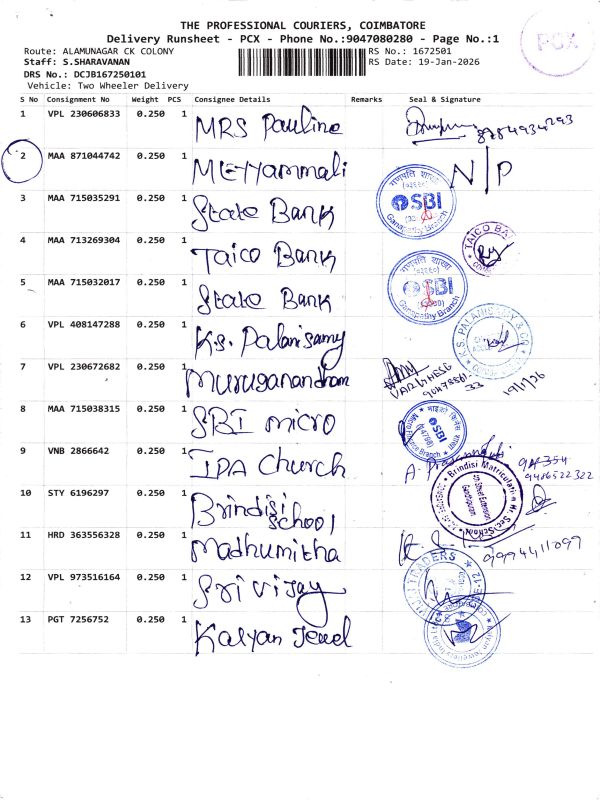 THE PROFESSIONAL COURIERS, COIMBATORE
Delivery Runsheet - PCX - Phone No.:9047080280 - Page No.:1
PCX
Route: ALAMUNAGAR CK COLONY
RS No.: 1672501
Staff: S.SHARAVANAN
RS Date: 19-Jan-2026
DRS No.: DCJB167250101
Vehicle: Two Wheeler Delivery
S No Consignment No Weight PCS Consignee Details Remarks Seal & Signature
1 VPL 230606833 0.250 1 MRS Pauline
2 MAA 871044742 0.250 1 Meyyammali N/P
3 MAA 715035291 0.250 1 State Bank
गणपति शाखा SBI Ganapathy Branch
4 MAA 713269304 0.250 1 Taico Bank
TAICO BA
5 MAA 715032017 0.250 1 State Bank
गणपति शाखा SBI Ganapathy Branch
6 VPL 408147288 0.250 1 K.S. Palanisamy
K.S. PALANISAMY & CO
7 VPL 230672682 0.250 1 Muruganandham
19/1/26
8 MAA 715038315 0.250 1 SBI micro
SBI Micro Finance Branch
9 VNB 2866642 0.250 1 IPA Church
9486522322
10 STY 6196297 0.250 1 Brindisi School
Brindisi Matriculation Hr. Sec. School
11 HRD 363556328 0.250 1 Madhumitha
9994411099
12 VPL 973516164 0.250 1 Sri Vijay
TRADERS
13 PGT 7256752 0.250 1 Kalyan Jewel